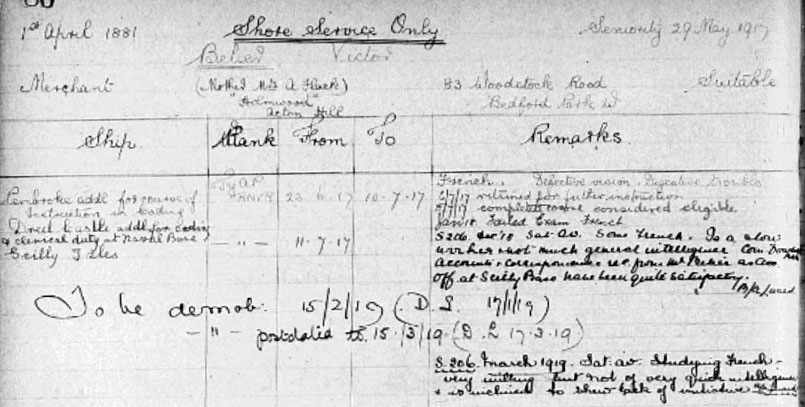 1st April 1881 Shore Service Only Seniority 29 May 1917
Victor
Merchant (Mother Mrs A 83 Woodstock Road Suitable
"Holmwood" Bedford Park W
Acton Hill
Ship Rank From To Remarks
French. Defective vision. Digestive trouble
Pembroke addl for course of RNVR 23.6.17 10.7.17 retained for further instruction
Instruction in Coding completed course considered eligible
addl for coding Jan 18 Failed Exam French
& clerical duty at Naval Base - " - 11.7.17 S206. Sat. Av. Some French. Is a slow
Scilly Isles worker & not much general intelligence
Accounts & Correspondence
off at Scilly Base have been quite satisfactory.
To be demob. 15/2/19 (D.L. 17/1/19)
- " - postdated to 15/3/19 (D.L 17.3.19)
S.206. March 1919. Sat. av. Studying French -
very willing but not of very quick intelligence
& is inclined to show lack of initiative